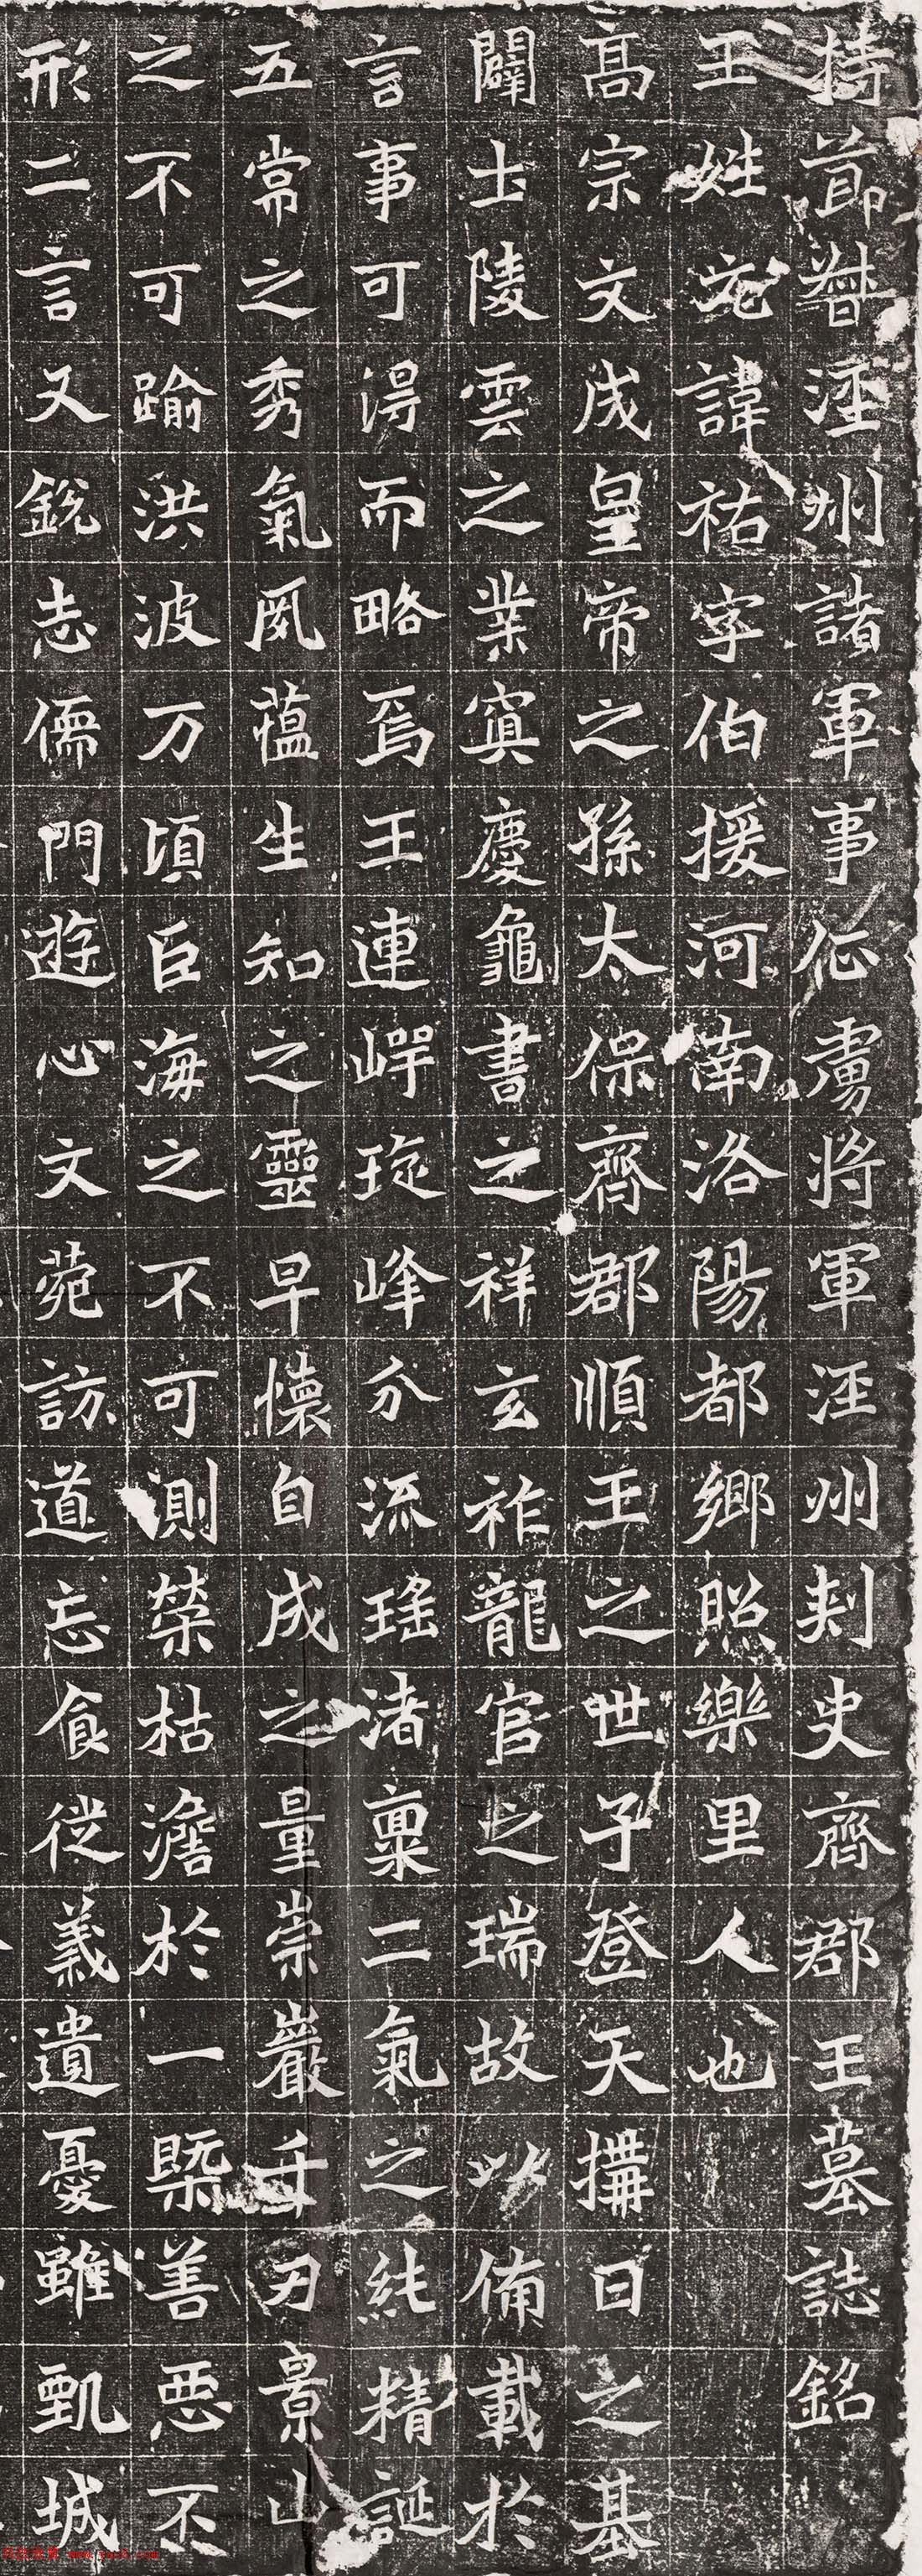 持節督涇州諸軍事征虜將軍涇州刺史齊郡王墓誌銘
王姓元諱祐字伯援河南洛陽都鄉照樂里人也
高宗文成皇帝之孫太保齊郡順王之世子登天構日之基
闢土陵雲之業寘慶龜書之祥玄祚龍官之瑞故以備載於
言事可得而略焉王連崿琁峰分流瑤渚稟二氣之純精誕
五常之秀氣夙蘊生知之靈早懷自成之量崇巖千刃景山
之不可踰洪波万頃巨海之不可測榮枯澹於一槩善惡不
形二言又銳志儒門遊心文菀訪道忘食從義遺憂雖甄城